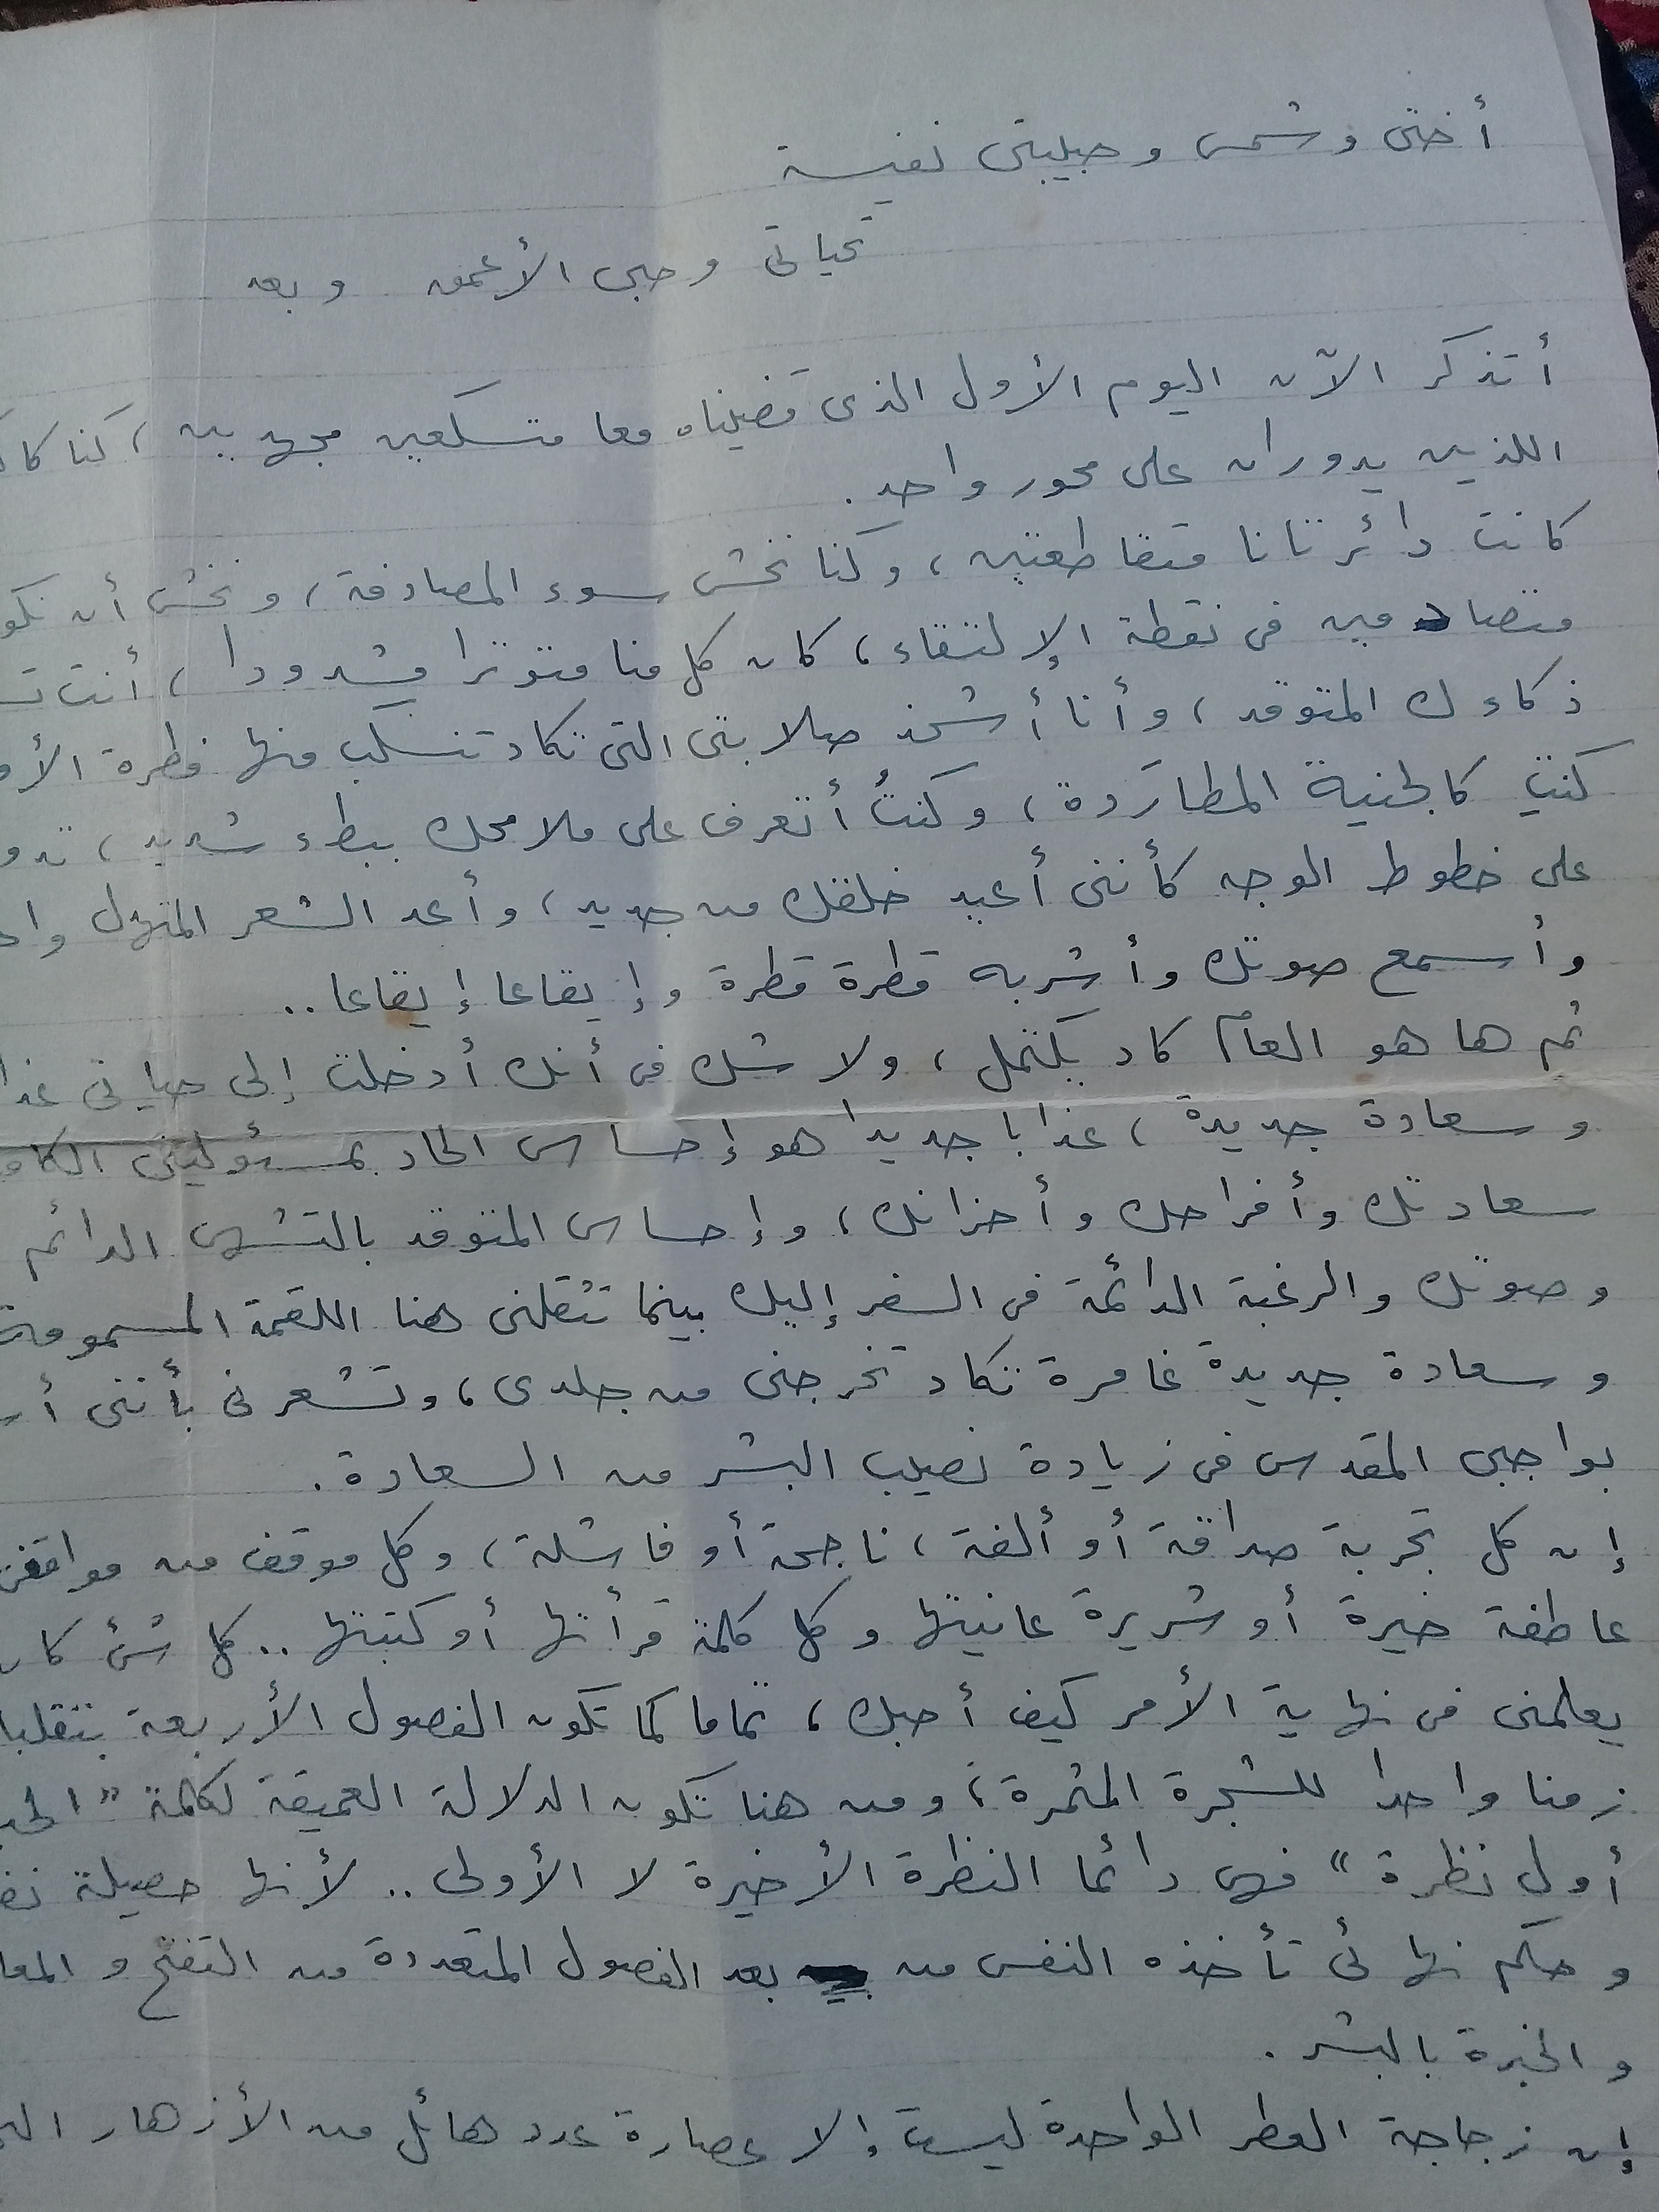 أختى وشمسى وحبيبتى نفيسة
تحياتى وحبى الأعمق وبعد
أتذكر الآن اليوم الأول الذى قضيناه معا متسكعين مجهدين، كنا
اللذين يدوران على محور واحد.
كانت دائرتانا متقاطعتين، وكنا نخشى سوء المصادفة، ونخشى أن
متصادمين فى نقطة الإلتقاء، كان كل منا متوترا مشدودا، أنت
ذكاءك المتوقد، وأنا أشحذ صلابتى التى تكاد تنسكب منها قطرة
كنتِ كالجنية المطارَدة، وكنتُ أتعرف على ملامحك ببطء شديد،
على خطوط الوجه كأننى أعيد خلقك من جديد، وأعد الشعر المتهدل
وأسمع صوتك وأشربه قطرة قطرة وإيقاعا إيقاعا..
ثم ها هو العام كاد يكتمل، ولا شك فى أنك أدخلت إلى حياتى
وسعادة جديدة، عذابا جديدا هو إحساسى الحاد بمسئوليتى
سعادتك وأفراحك وأحزانك، وإحساسى المتوقد بالتشهى الدائم
وصوتك والرغبة الدائمة فى السفر إليك بينما تثقلنى هنا اللقمة المسمومة
وسعادة جديدة غامرة تكاد تخرجنى من جلدى، وتشعرنى بأننى
بواجبى المقدس فى زيادة نصيب البشر من السعادة.
إن كل تجربة صداقة أو ألفة، ناجحة أو فاشلة، وكل موقف من
عاطفة خيرة أو شريرة عانيتها وكل كلمة قرأتها أو كتبتها.. كل شئ كان
يعلمنى فى نهاية الأمر كيف أحبك، تماما كما تكون الفصول الأربعة
زمنا واحدا للشجرة المثمرة، ومن هنا تكون الدلالة العميقة لكلمة "
أول نظرة" فهى دائما النظرة الأخيرة لا الأولى.. لأنها حصيلة
وحكم نهائى تأخذه النفس من بعد الفصول المتعددة من التفتح و
والخبرة بالبشر.
إن زجاجة العطر الواحدة ليست إلا عصارة عدد هائل من الأزهار